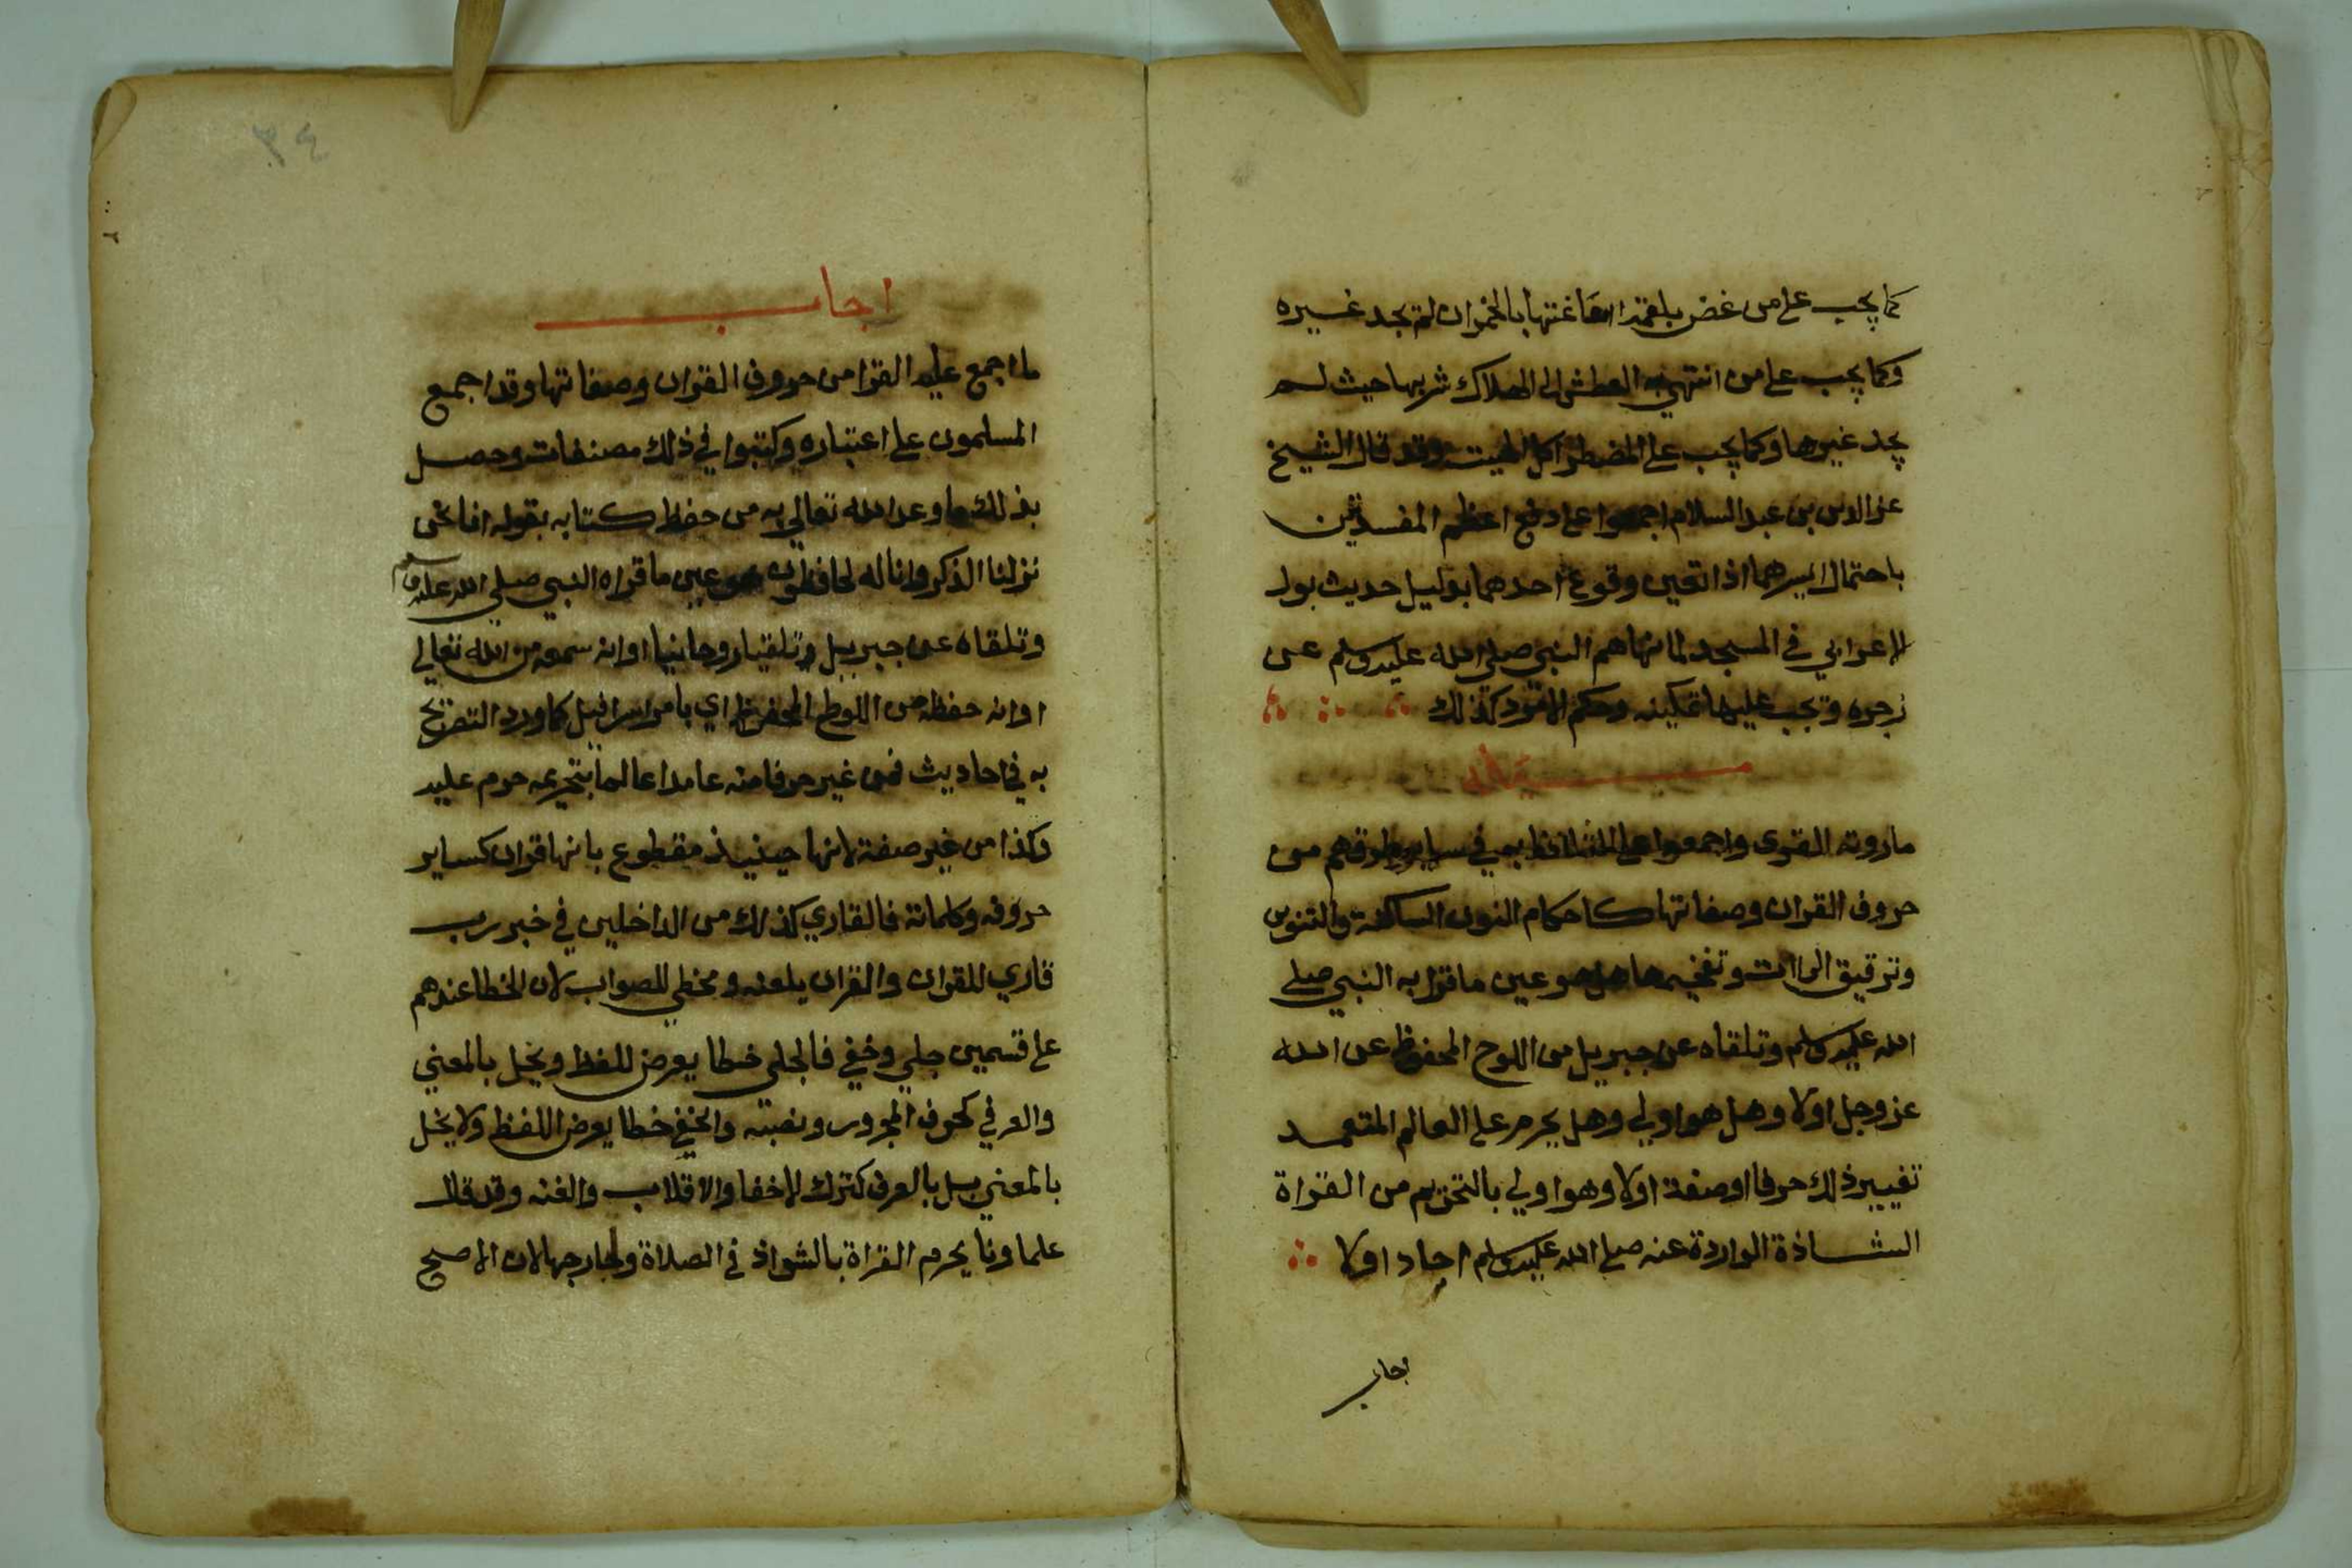 كما يجب على من غص بلقمة اساغتها بالخمر ان لم يجد غيره
وكما يجب على من انتهى به العطش الى الهلاك شربها حيث لم
يجد غيرها وكما يجب على المضطر اكل الميتة وقد قال الشيخ
عز الدين بن عبد السلام اجمعوا على دفع اعظم المفسدتين
باحتمال ايسرهما اذا تعين وقوع احدهما بدليل حديث بول
الاعرابي في المسجد لما نهاهم النبي صلى الله عليه وسلم عن
زجره وتجب عليها تمكينه وحكم الامرد كذلك
سيل
ما روته القرى واجمعوا على التلفظ به في ساير طرقهم من
حروف القران وصفاتها كاحكام النون الساكنة والتنوين
وترقيق الراات وتفخيمها هل هو عين ما قرا به النبي صلى
الله عليه وسلم وتلقاه عن جبريل من اللوح المحفوظ عن الله
عز وجل اولا وهل هو اولي وهل يحرم على العالم المتعمد
تغيير ذلك حرفا او صفة اولا وهو اولي بالتحريم من القراة
الشاذة الواردة عنه صلى الله عليه وسلم احاد اولا
اجاب
٣٤
اجاب
ما اجمع عليه القرا من حروف القران وصفاتها وقد اجمع
المسلمون على اعتباره وكتبوا في ذلك مصنفات وحصل
بذلك ما وعد الله تعالى به من حفظ كتابه بقوله انا نحن
نزلنا الذكر وانا له لحافظون هو عين ما قراه النبي صلى الله عليه وسلم
وتلقاه عن جبريل تلقيا روحانيا او انه سمعه من الله تعالى
او انه حفظه من اللوح المحفوظ اي بامر اسرافيل كما ورد التصريح
به في احاديث فمن غير حرفا منه عامدا عالما بتحريمه حرم عليه
وكذا من غير صفة لانها حينيذ مقطوع بانها قران كساير
حروفه وكلماته فالقاري كذلك من الداخلين في خبر رب
قاري للقران والقران يلعنه ومخطي للصواب لان الخطا عندهم
على قسمين جلي وخفي فالجلي خطا يعرض للفظ ويخل بالمعني
والعرفي كحرف المجرور ونصبه والخفي خطا يعرض اللفظ ولا يخل
بالمعني بل بالعرف كترك الاخفا والاقلاب والغنه وقد قال
علماونا يحرم القراة بالشواذ في الصلاة وخارجها لان الاصح